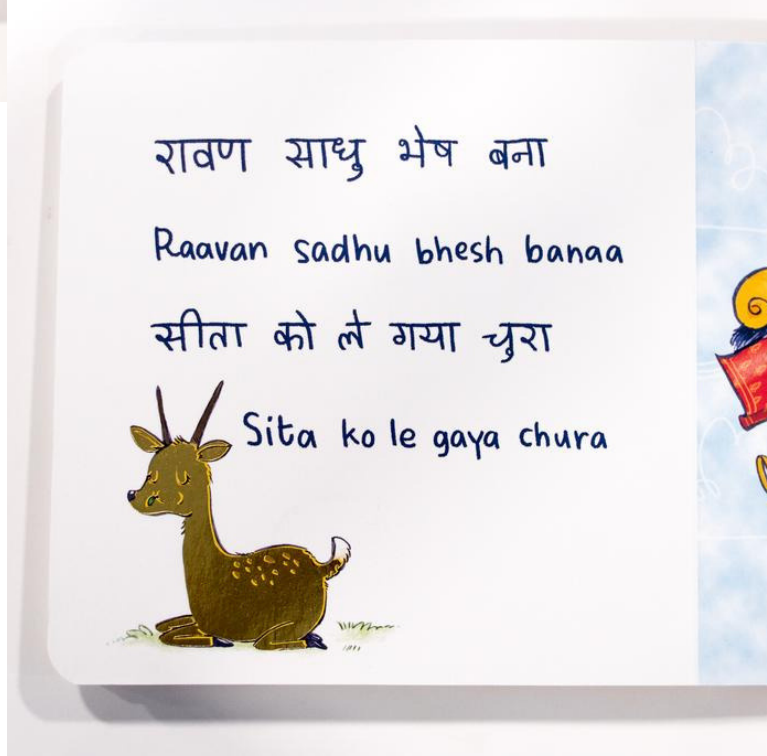 रावण साधु भेष बना
Raavan sadhu bhesh banaa
सीता को ले गया चुरा
Sita ko le gaya chura